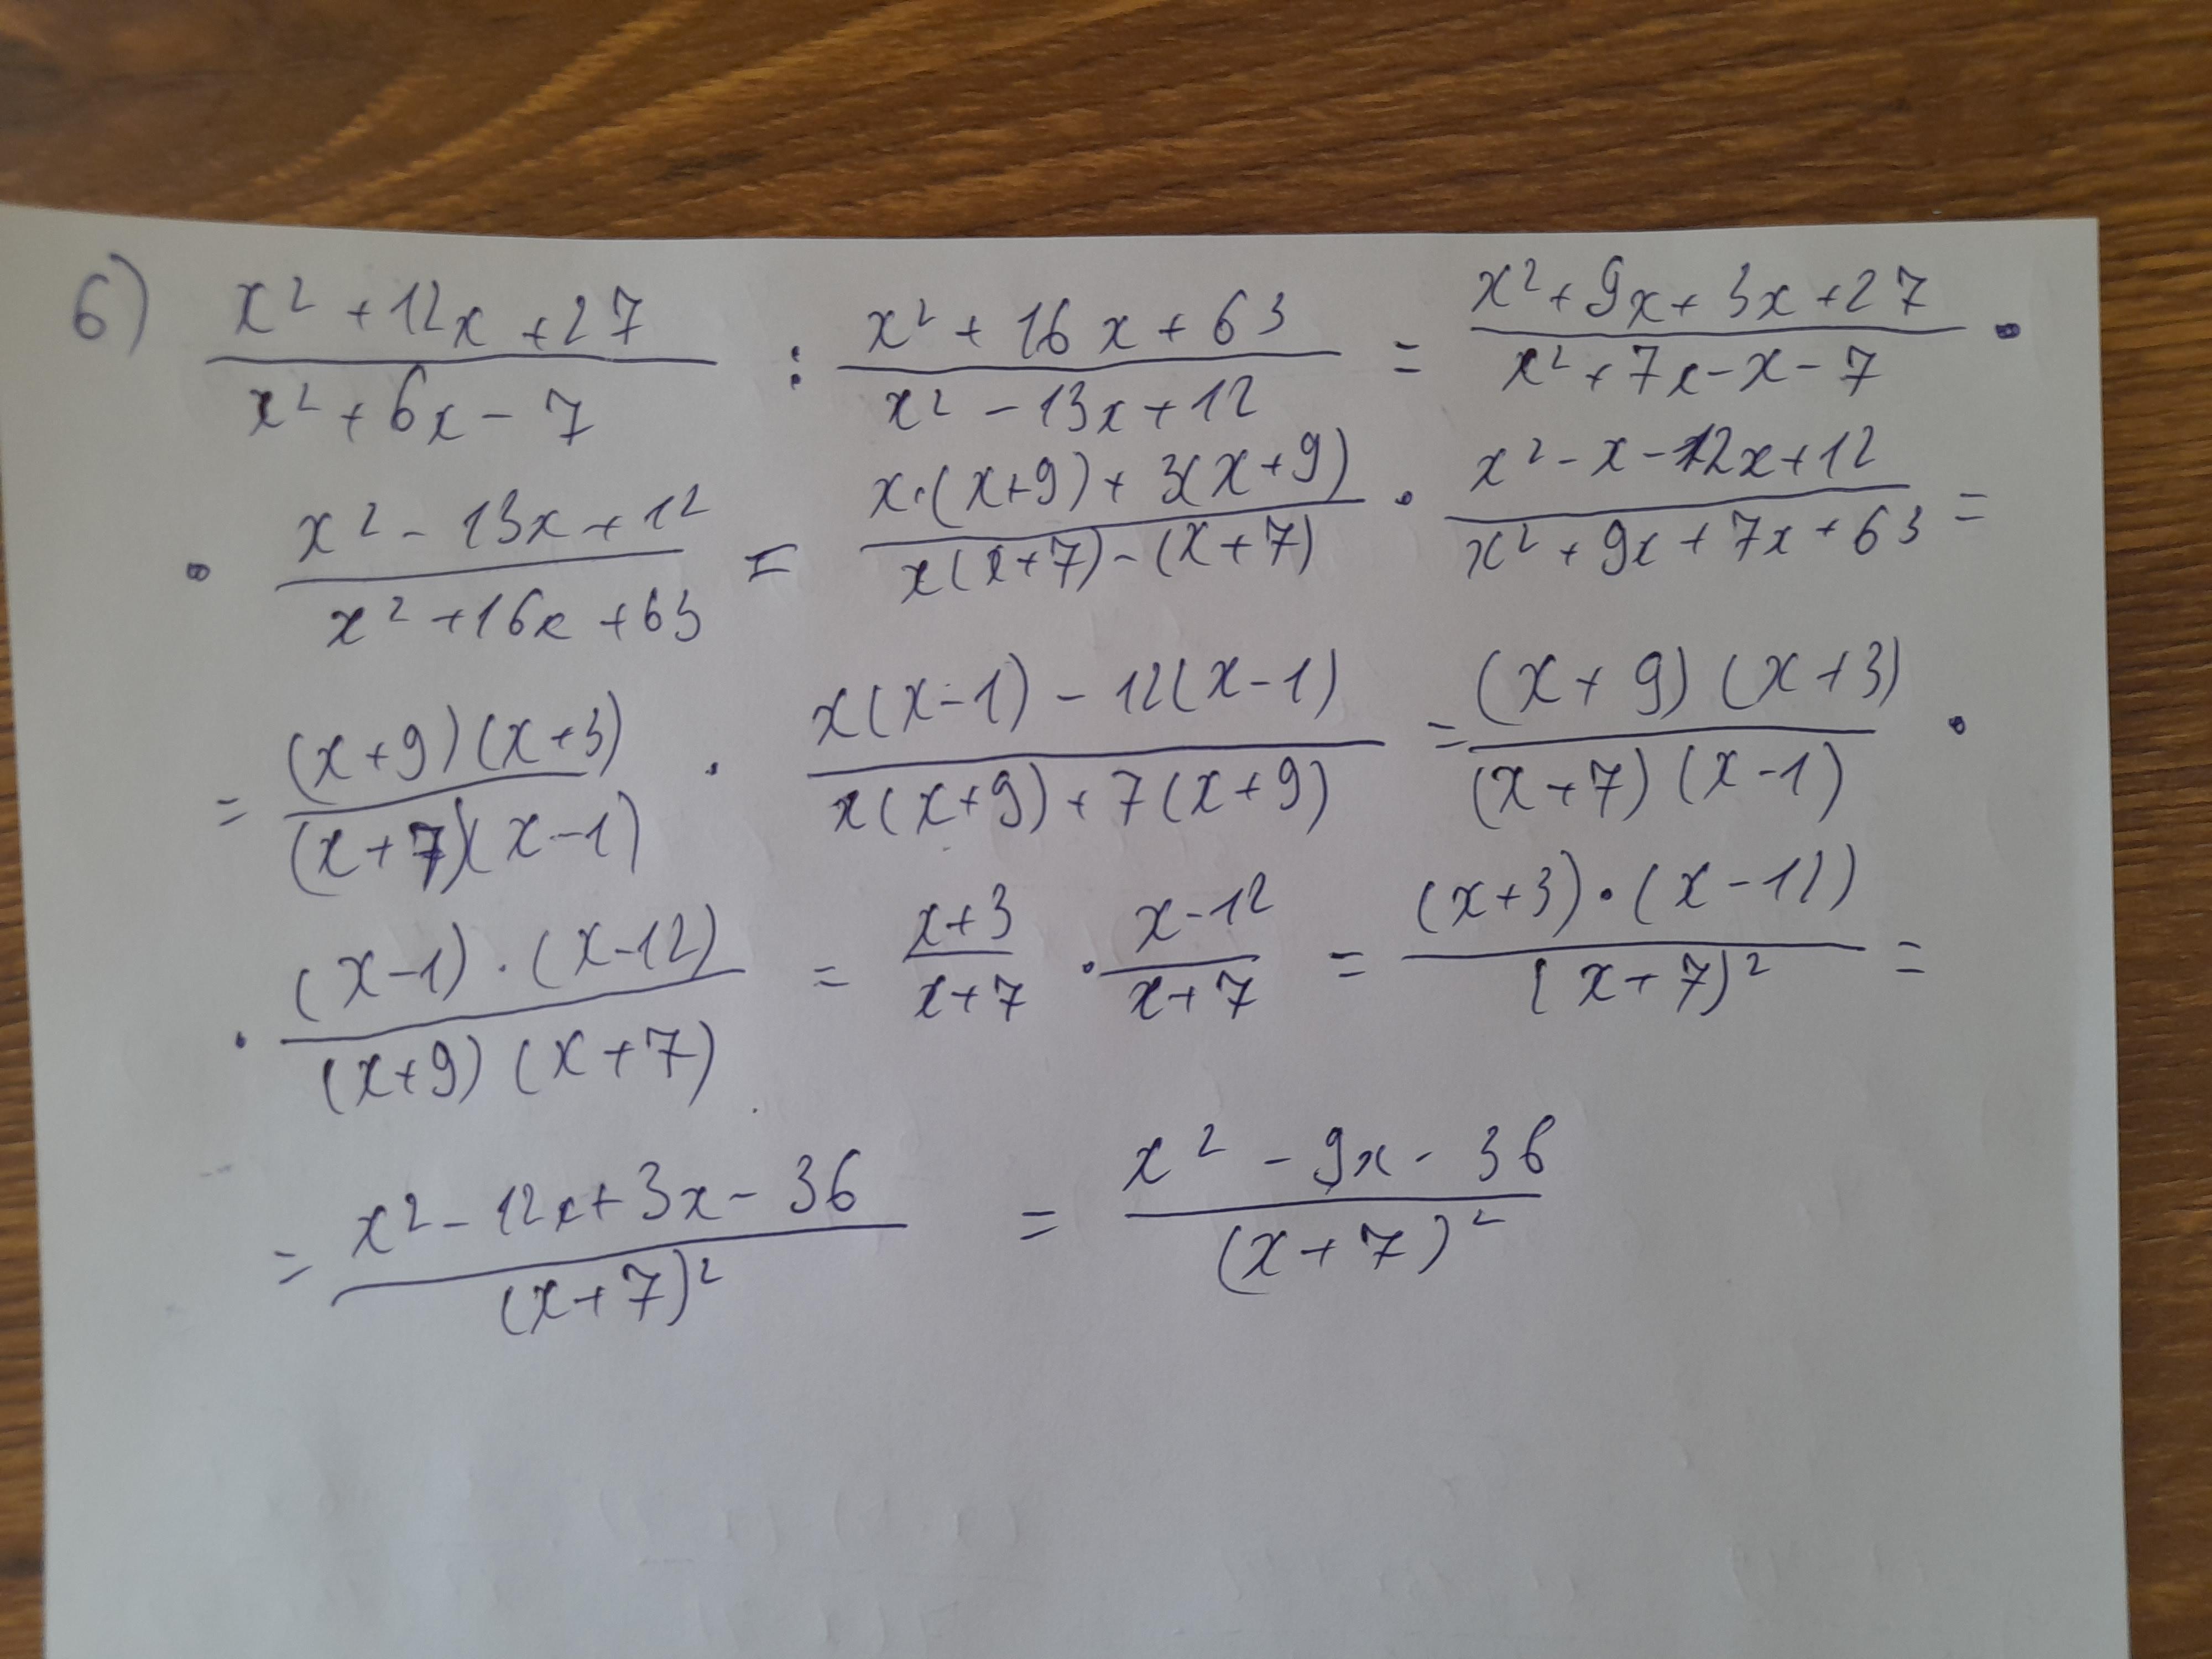 6) (x² + 12x + 27)/(x² + 6x - 7) : (x² + 16x + 63)/(x² - 13x + 12) = (x² + 9x + 3x + 27)/(x² + 7x - x - 7) •
• (x² - 13x + 12)/(x² + 16x + 63) = (x·(x+9) + 3(x+9))/(x(x+7) - (x+7)) • (x² - x - 12x + 12)/(x² + 9x + 7x + 63) =
= ((x+9)(x+3))/((x+7)(x-1)) · (x(x-1) - 12(x-1))/(x(x+9) + 7(x+9)) = ((x+9)(x+3))/((x+7)(x-1)) ·
· ((x-1)·(x-12))/((x+9)(x+7)) = (x+3)/(x+7) · (x-12)/(x+7) = ((x+3)·(x-12))/((x+7)²) =
= (x² - 12x + 3x - 36)/((x+7)²) = (x² - 9x - 36)/((x+7)²)